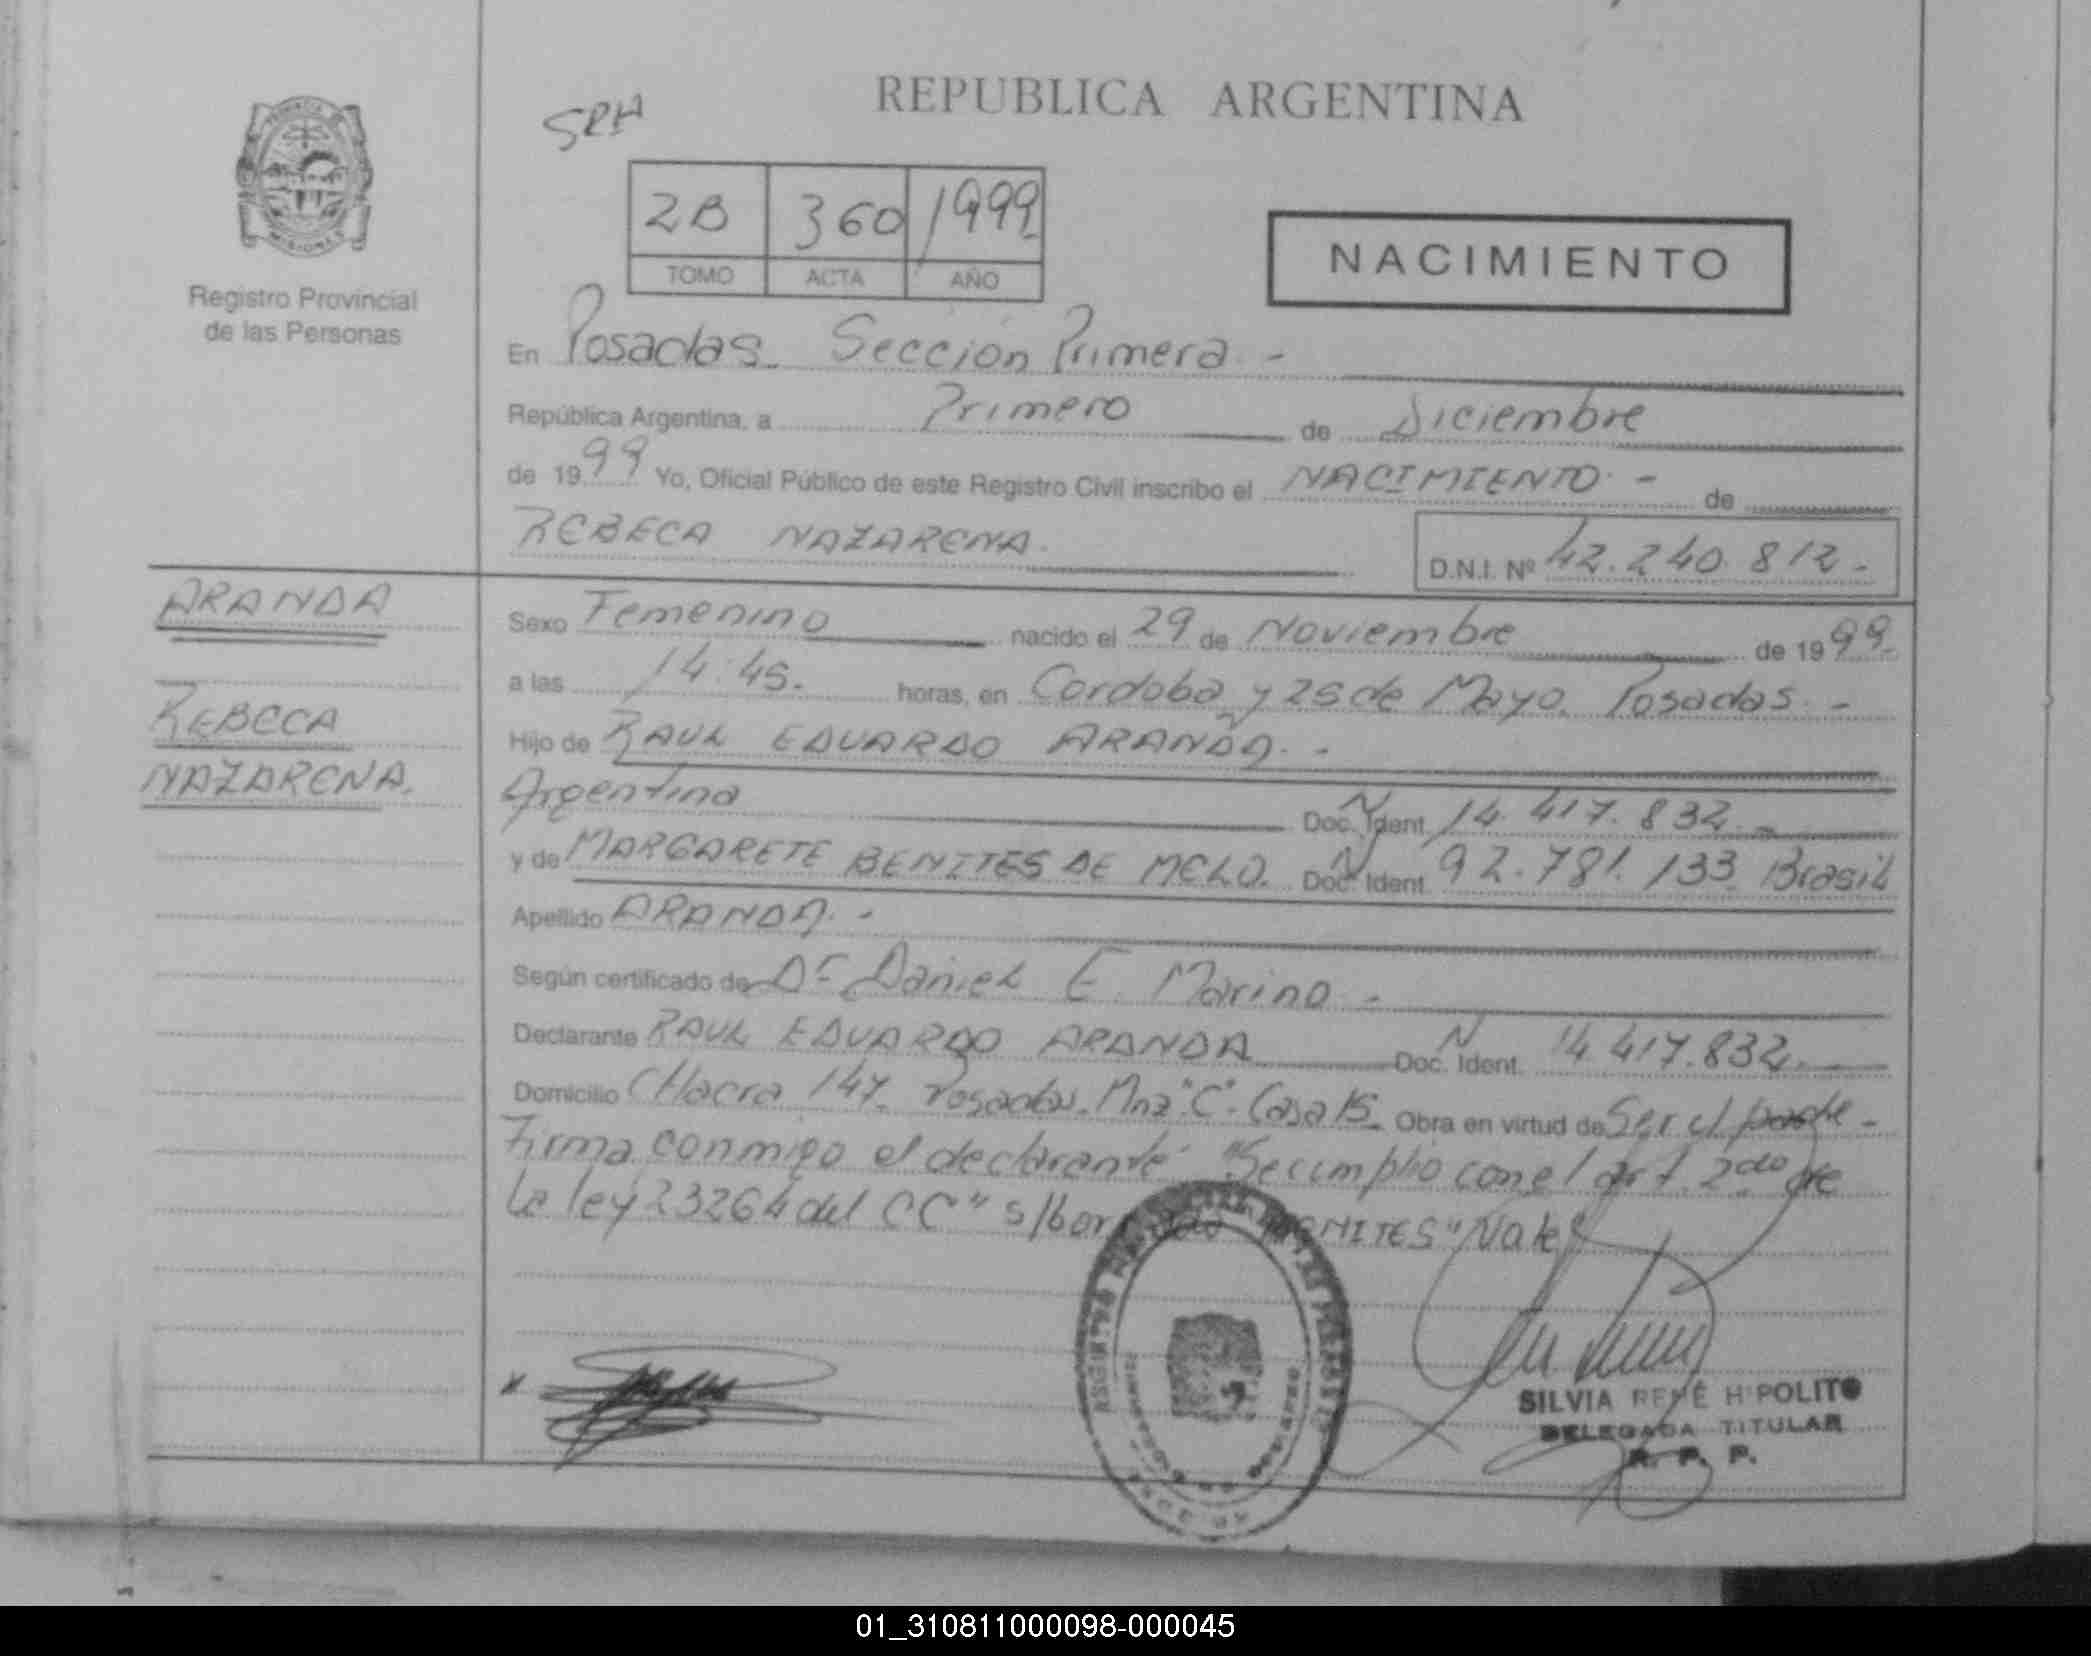 REPUBLICA ARGENTINA
SRH
PROVINCIA DE
MISIONES
Registro Provincial
de las Personas
2B 360 1999
TOMO ACTA AÑO
NACIMIENTO
En Posadas. Sección Primera -
República Argentina, a Primero de Diciembre
de 1999 Yo, Oficial Público de este Registro Civil inscribo el NACIMIENTO - de
REBECA NAZARENA.
D.N.I. Nº 42.240.812.-
ARANDA
REBECA
NAZARENA.
Sexo Femenino nacido el 29 de Noviembre de 1999.
a las 14:45. horas, en Cordoba y 25 de Mayo. Posadas. -
Hijo de RAUL EDUARDO ARANDA. -
Argentina Doc. Ident. 14.417.832.-
y de MARGARETE BENITES DE MELO. Doc. Ident. 92.781.133 Brasil
Apellido ARANDA. -
Según certificado de Dr Daniel E. Marino -
Declarante RAUL EDUARDO ARANDA Doc. Ident. 14.417.832.
Domicilio CHacra 147. Posadas. Mnz "C". Casa 15. Obra en virtud de Ser el padre -
Firma conmigo el declarante "Se cumplio con el art. 2do de
la ley 23264 del CC" s/borrado "BENITES" Vale
SILVIA RENÉ HIPOLITO
DELEGADA TITULAR
R. P. P.
01_310811000098-000045